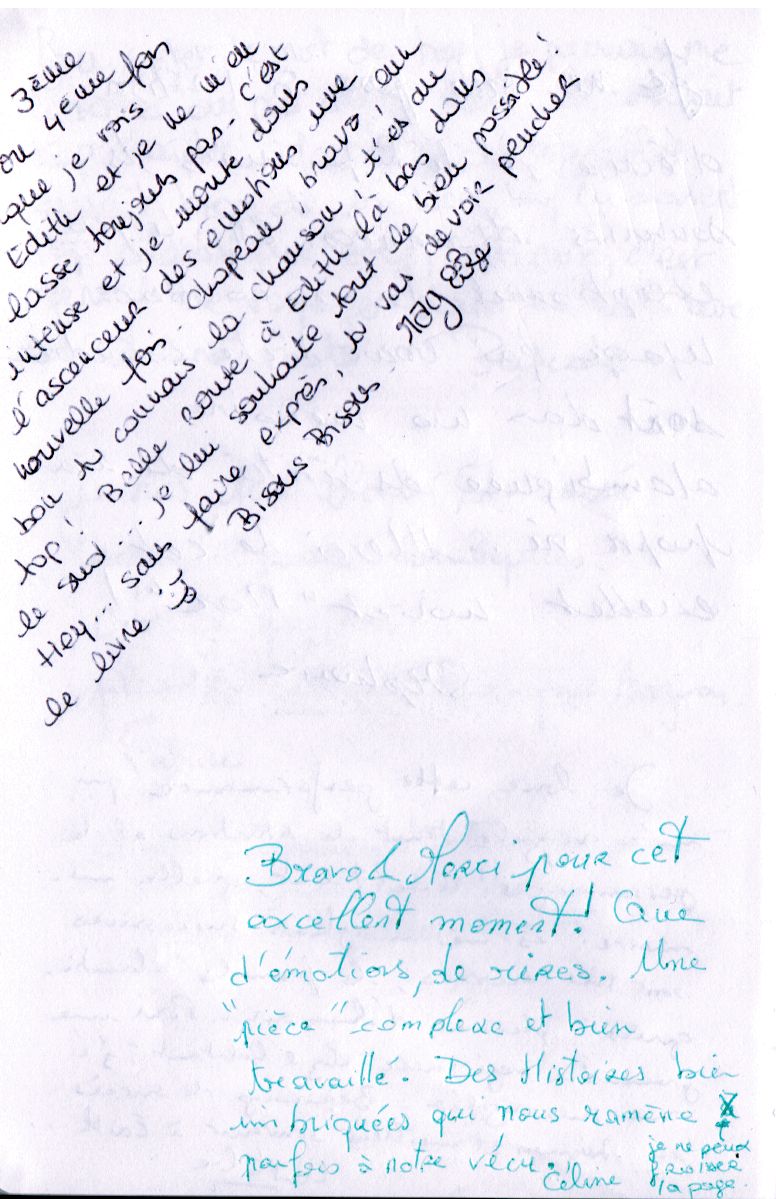 3ème
ou 4ème fois
que je vois
Edith et je ne m'en
lasse toujours pas. C'est
intense et je monte dans
l'ascenceur des émotions une
nouvelle fois. Chapeau, bravo,
bon tu connais la chanson, t'es au
top! Belle route à Edith là bas dans
le sud... je lui souhaite tout le bien possible!
Hey... sans faire exprès, tu vas devoir pencher
le livre ;)
Bisous Bisous
Bravo & Merci pour cet
excellent moment! Que
d'émotions, de rires. Une
"pièce" complexe et bien
travaillé. Des Histoires bien
imbriquées qui nous ramène
parfois à notre vécu.
Céline
je ne peux
la page.